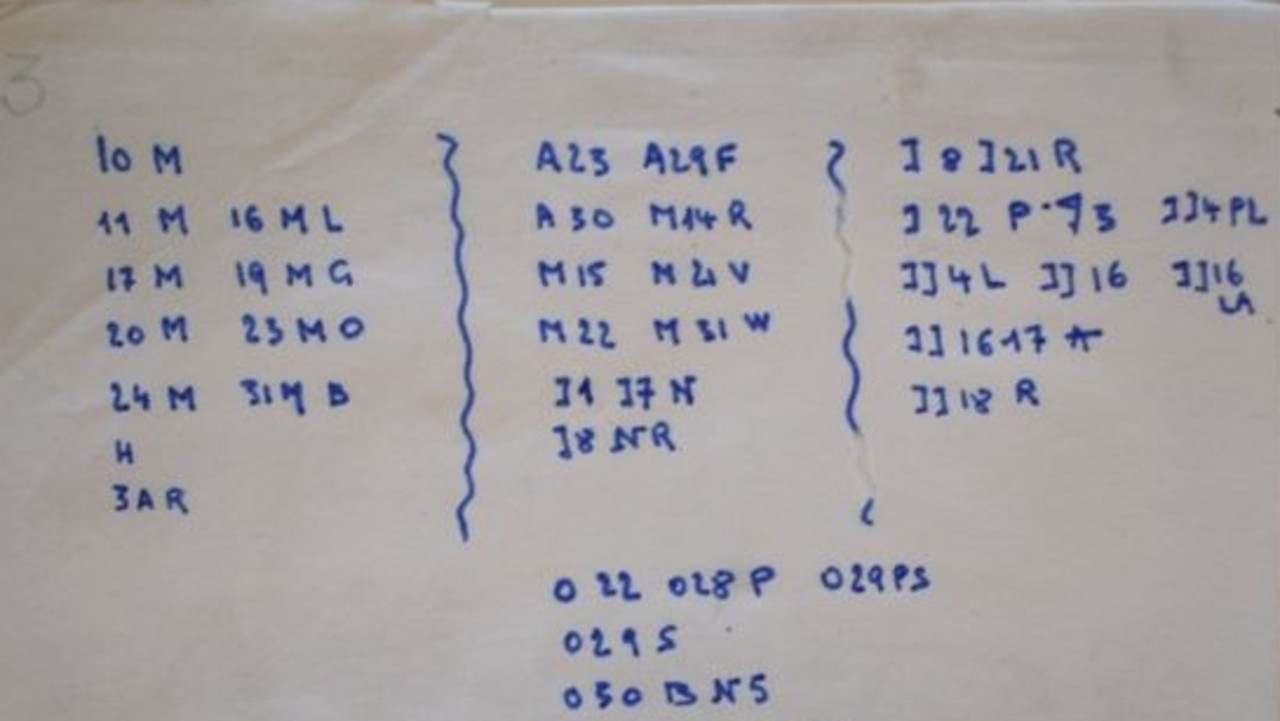 3
10 M
11 M 16 M L
17 M 19 M G
20 M 23 M O
24 M 31 M B
H
3 A R
A23 A29F
A 30 M14 R
M 15 M 21 V
M 22 M 31 W
J1 J7 N
J8 N R
J 8 J21 R
J 22 P
JJ4 PL
JJ4 L JJ 16 JJ16
LA
JJ 16 17 A
JJ 18 R
O 22 O28 P O29PS
O29 S
O30 B N S